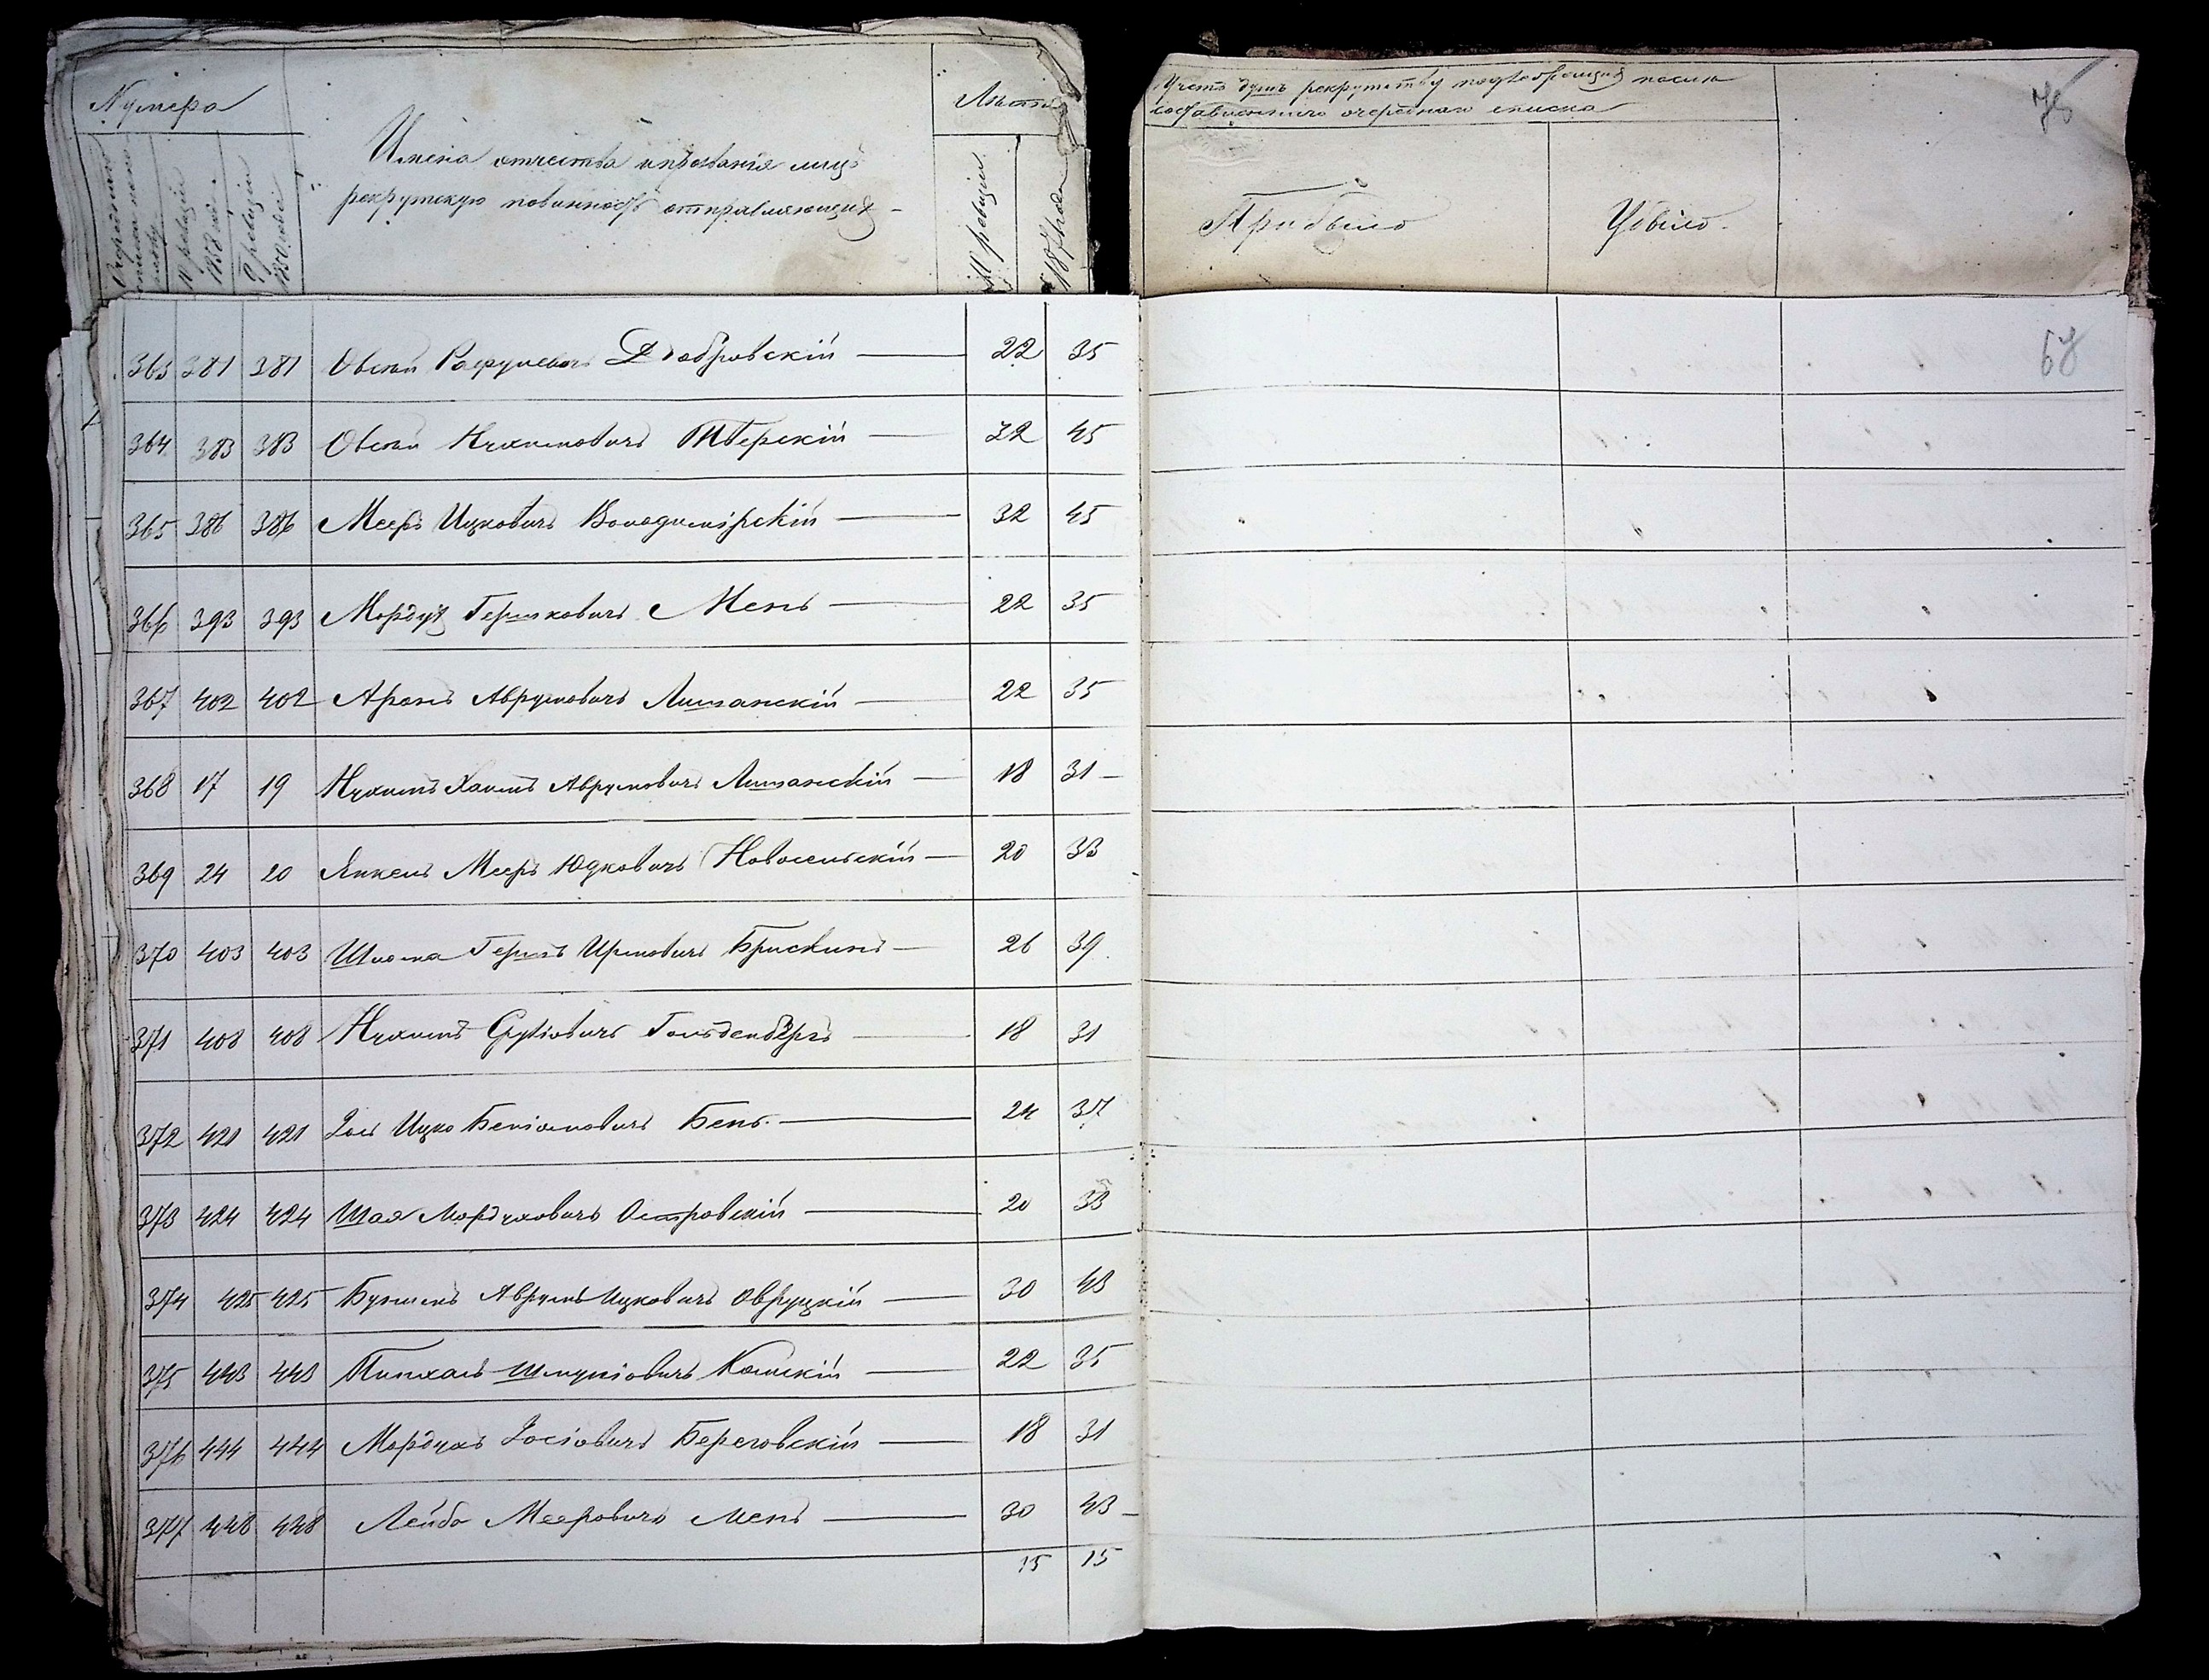 Нумера
Имена отчества и прозвания лицъ
рекрутскую повинность отправляющихъ
Лѣта
Счетъ душъ рекрутству подлежащихъ послѣ
составленнаго очереднаго списка
Прибыло
Убыло.
75
67
363 381 381 Овсей Рафуловичъ Домбровскій 22 35
364 383 383 Овсей Нухимовичъ Тверскій 32 45
365 386 386 Мееръ Ицковичъ Володимірскій 32 45
366 393 393 Мордухъ Гершковичъ Мень 22 35
367 402 402 Аронъ Аврумовичъ Лишанскій 22 35
368 17 19 Нухимъ Хаимъ Аврумовичъ Лишанскій 18 31
369 24 20 Янкель Мееръ Юдковичъ Новосельскій 20 33
370 403 403 Шлома Гершъ Ирмовичъ Брискинъ 26 39
371 408 408 Нухимъ Сруліовичъ Гольденбергъ 18 31
372 421 421 Іось Ицко Беніаминовичъ Бень. 24 37
373 424 424 Шая Мордуховичъ Островскій 20 33
374 425 425 Аврумъ Ицковичъ Овруцкій 30 43
375 443 443 Пинхасъ Шмуліовичъ 22 35
376 444 444 Мордухъ Іосіовичъ Береговскій 18 31
377 448 448 Лейба Мееровичъ Мень 30 43
15 15